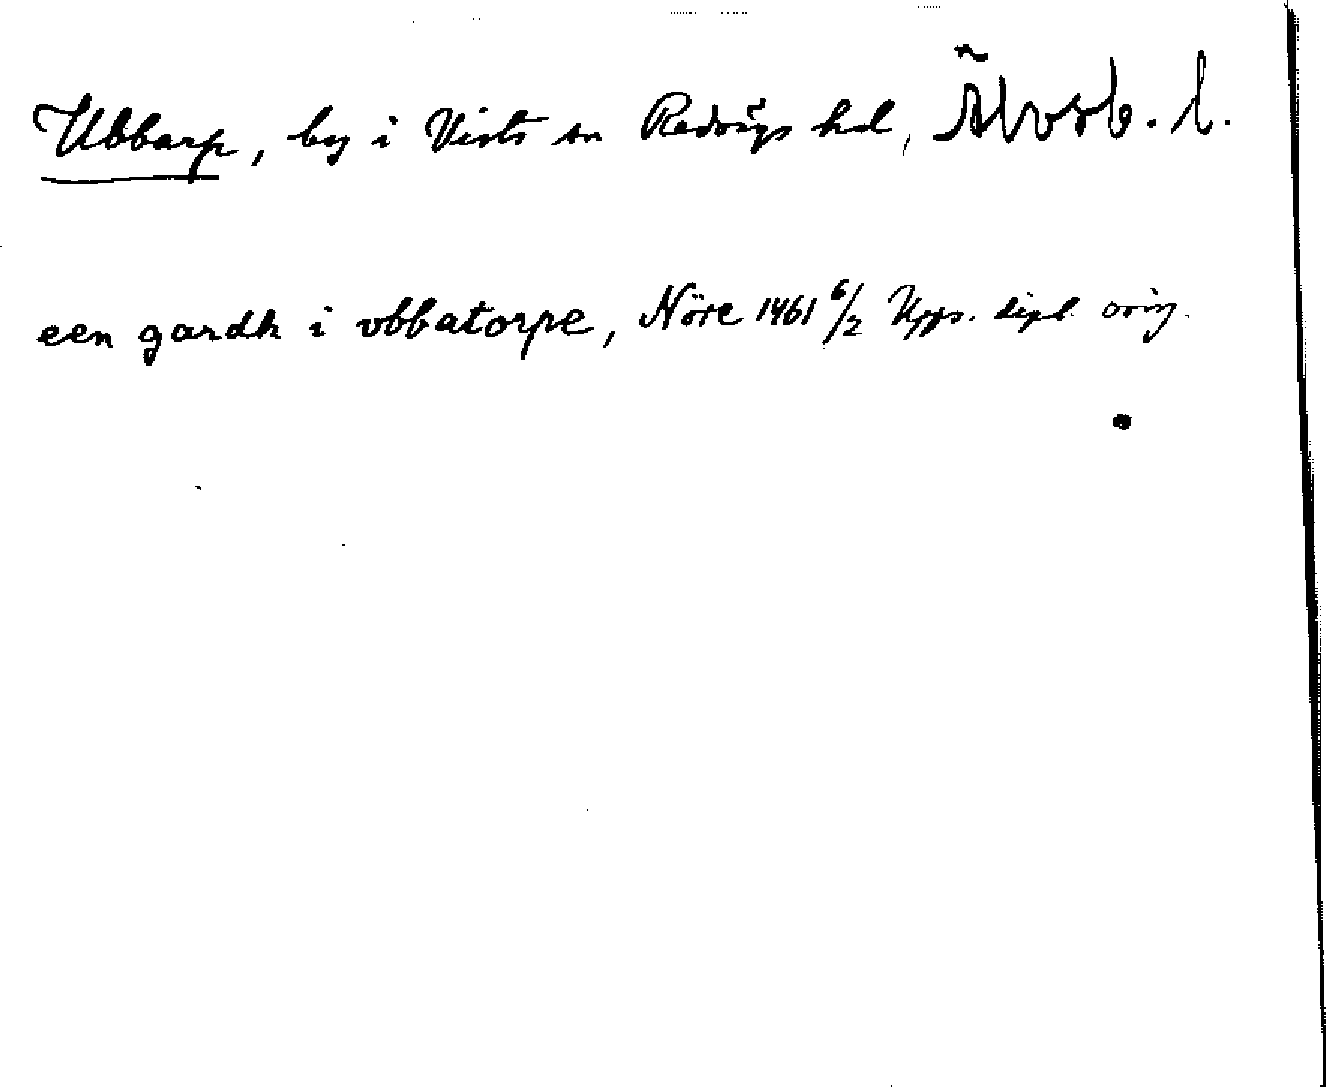 Ubbarp, by i Vists sn Redvägs hd, Älvsb. l.
een gardh i vbbatorpe, Nöre 1461 6/2 Upps. dipl. orig.